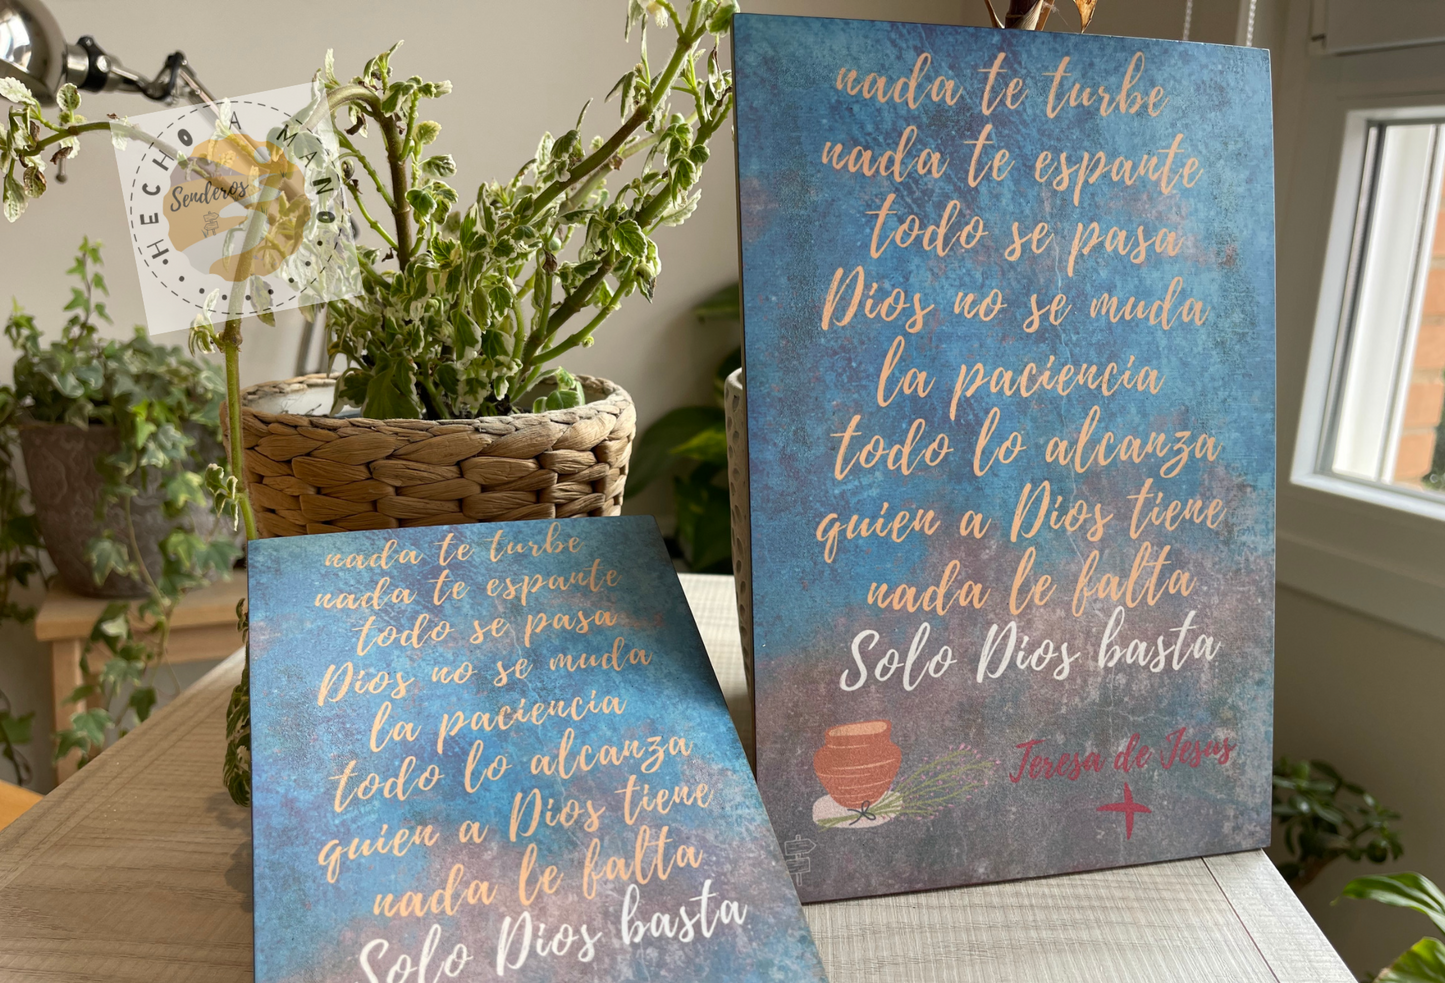 HECHO A MANO
Senderos
nada te turbe
nada te espante
todo se pasa
Dios no se muda
la paciencia
todo lo alcanza
quien a Dios tiene
nada le falta
Solo Dios basta
Teresa de Jesús
nada te turbe
nada te espante
todo se pasa
Dios no se muda
la paciencia
todo lo alcanza
quien a Dios tiene
nada le falta
Solo Dios basta